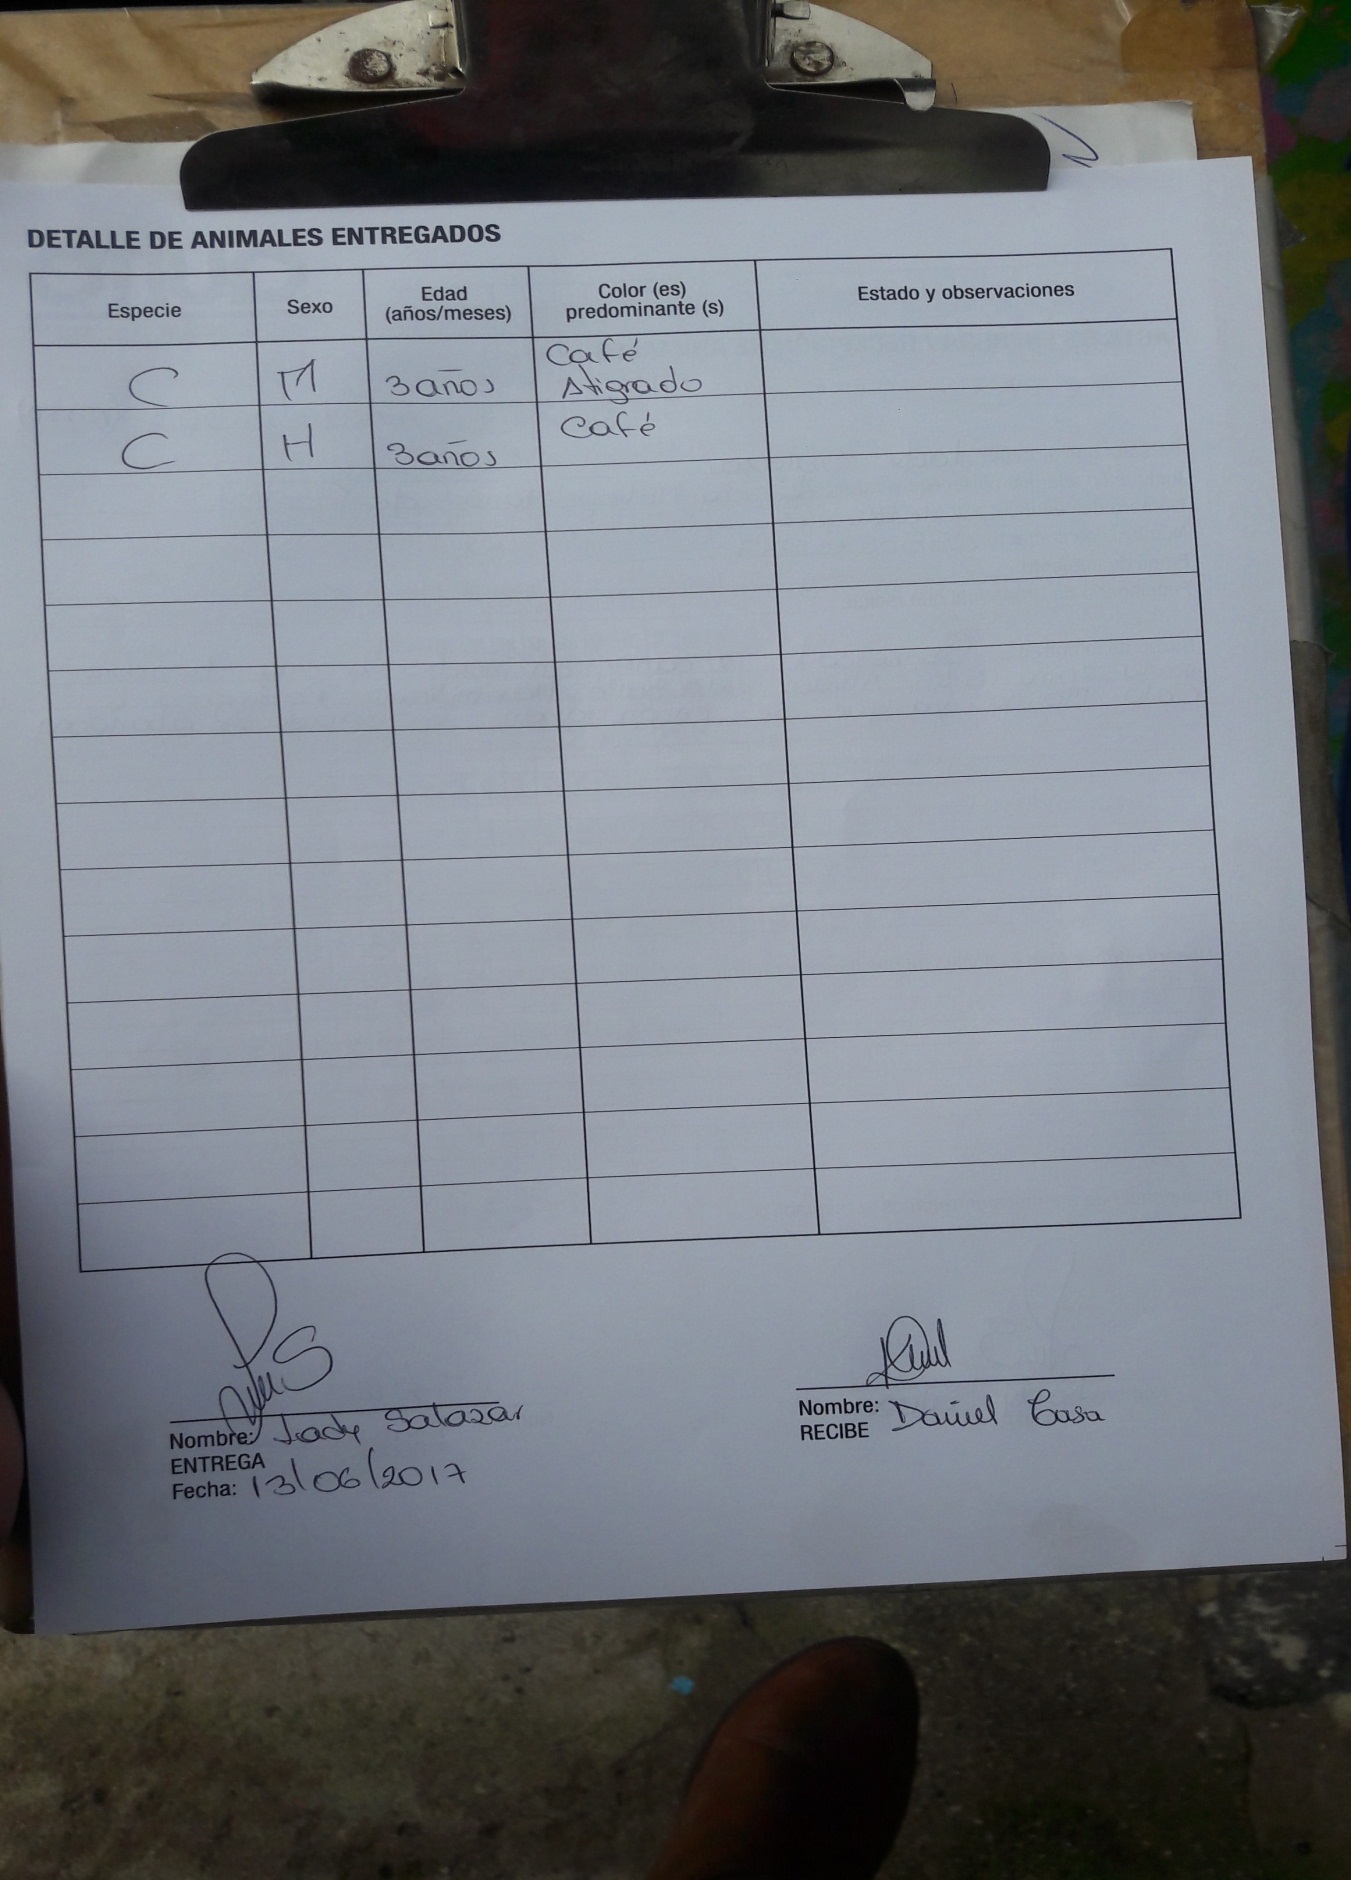 DETALLE DE ANIMALES ENTREGADOS
Especie Sexo Edad (años/meses) Color (es) predominante (s) Estado y observaciones
C M 3 años Café Atigrado
C H 3 años Café
Nombre: Lady Salazar
ENTREGA
Fecha: 13/06/2017
Nombre: Daniel Casa
RECIBE